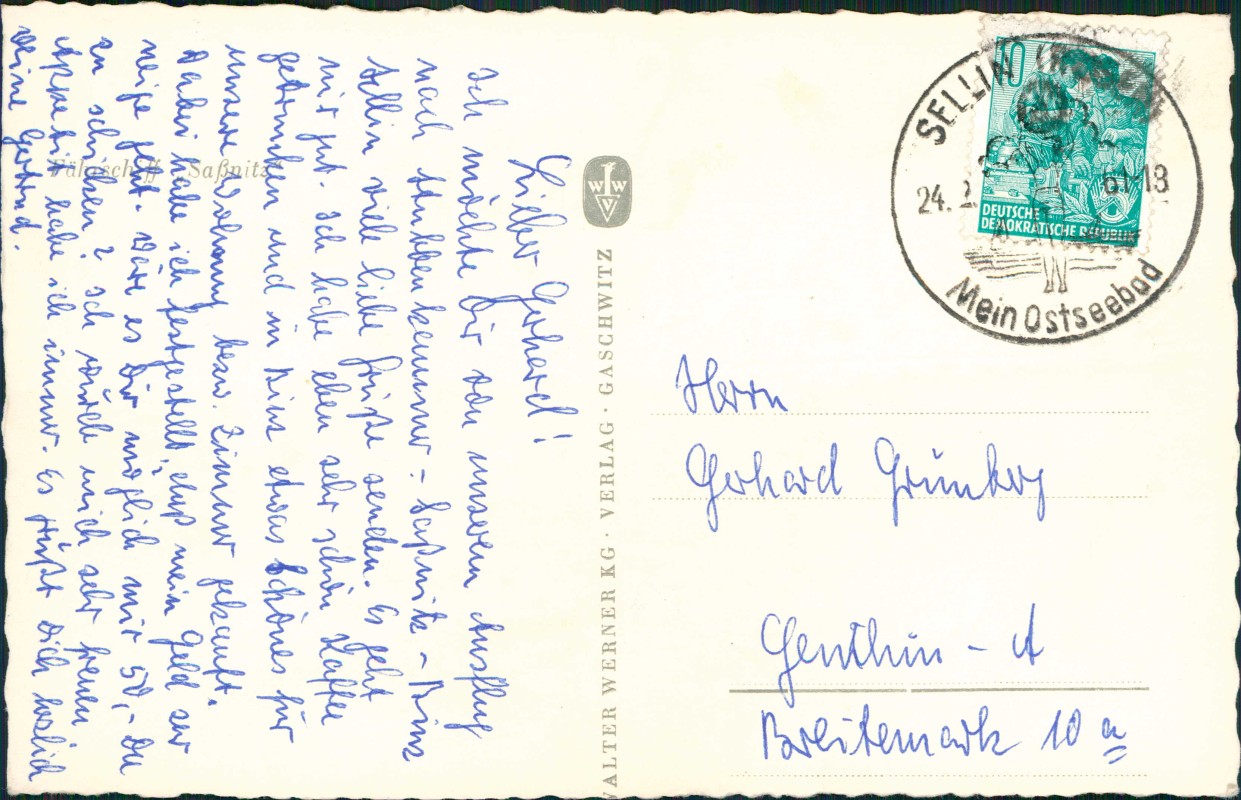 Lieber Gerhard!
Ich möchte Dir von unserem Ausflug
nach Stubbenkammer - Saßnitz - Binz
Sellin viele liebe Grüße senden. Es geht
mir gut. Ich habe eben sehr schön Kaffee
getrunken und in Binz etwas Schönes für
unsere Wohnung besw. Zimmer gekauft.
Dabei habe ich festgestellt, daß mein Geld zur
neige geht. Wäre es Dir möglich mir 50,- DM
zu schicken? Ich würde mich sehr freuen
Appetit habe ich immer. Es grüßt Dich herzlich
Deine Gertrud.
Fährschiff Saßnitz
WWV
WALTER WERNER KG · VERLAG · GASCHWITZ
10
DEUTSCHE
DEMOKRATISCHE REPUBLIK
SELLIN (RÜGEN)
24. 2. 61-18
Mein Ostseebad
Herrn
Gerhard Grünberg
Genthin - A
Breitemark 10 a